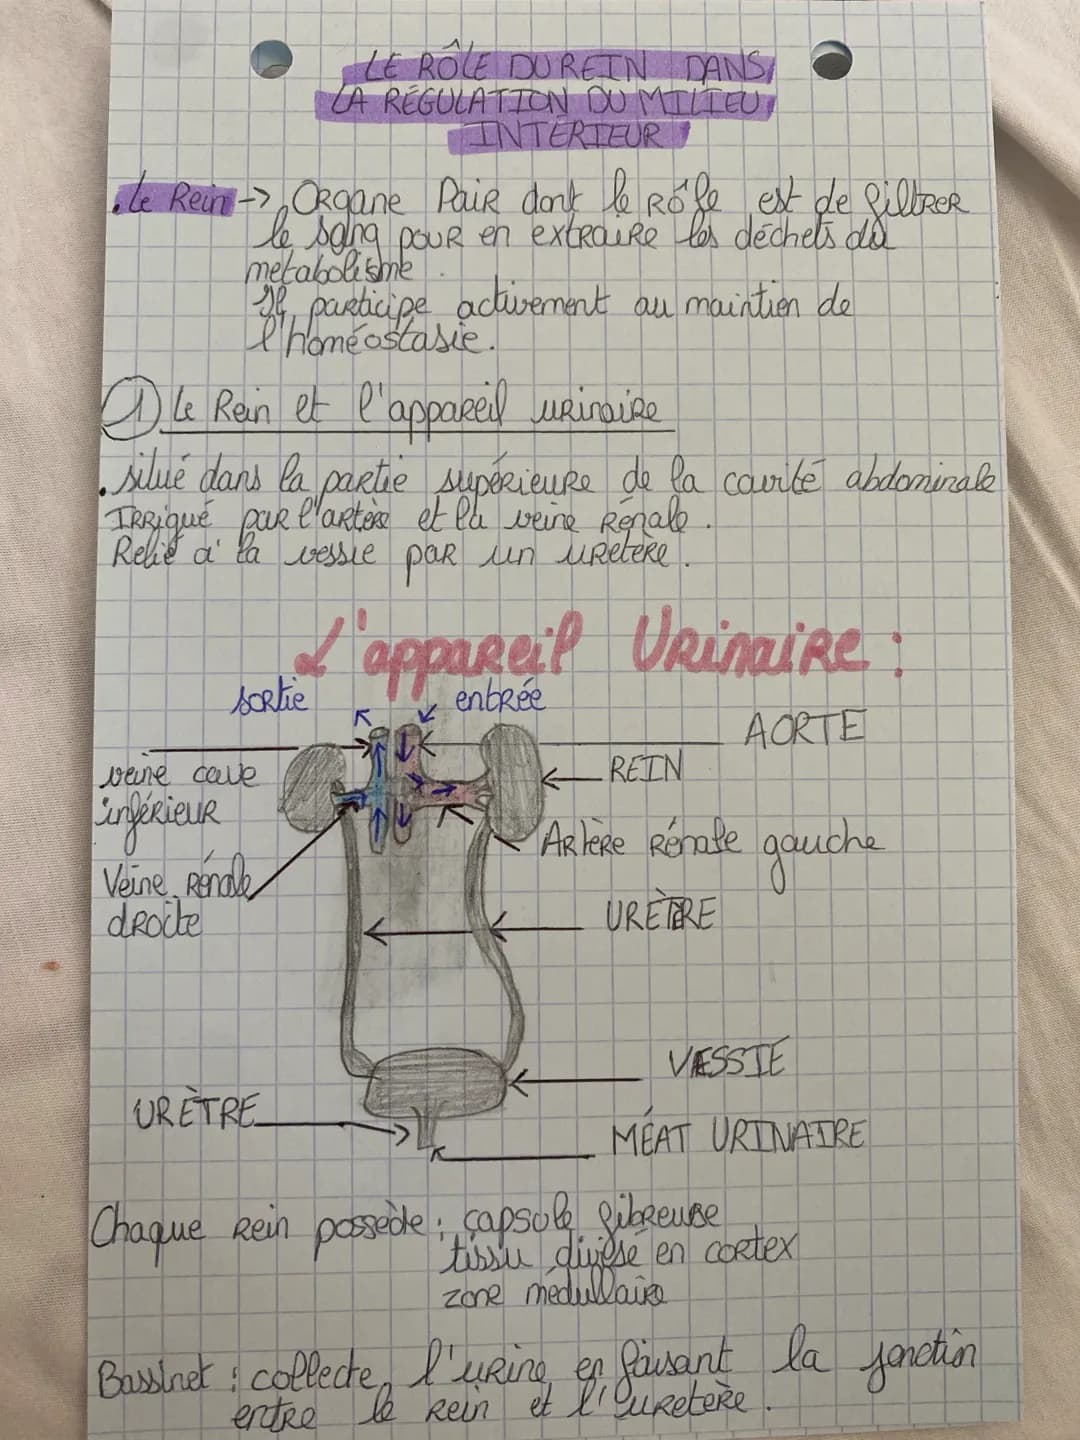 LE RÔLE DU REIN DANS
LA RÉGULATION DU MILIEU
INTÉRIEUR
. Le Rein -> Organe Pair dont le rôle est de filtrer
le sang pour en extraire les déchets du
metabolisme.
Il participe activement au maintien de
l'homéostasie.
① Le Rein et l'appareil urinaire
. situé dans la partie supérieure de la cavité abdominale
Irrigué par l'artère et la veine Rénale.
Relié à la vessie par un uretère.
L'appareil Urinaire :
sortie
entrée
AORTE
veine cave
inférieur
REIN
Artère Rénale gauche
Veine Rénale
droite
URETÈRE
VESSIE
URÈTRE
MÉAT URINAIRE
Chaque rein possède : capsule fibreuse
tissu divisé en cortex
zone médullaire
Bassinet : collecte l'urine en faisant la jonction
entre le rein et l'uretère.